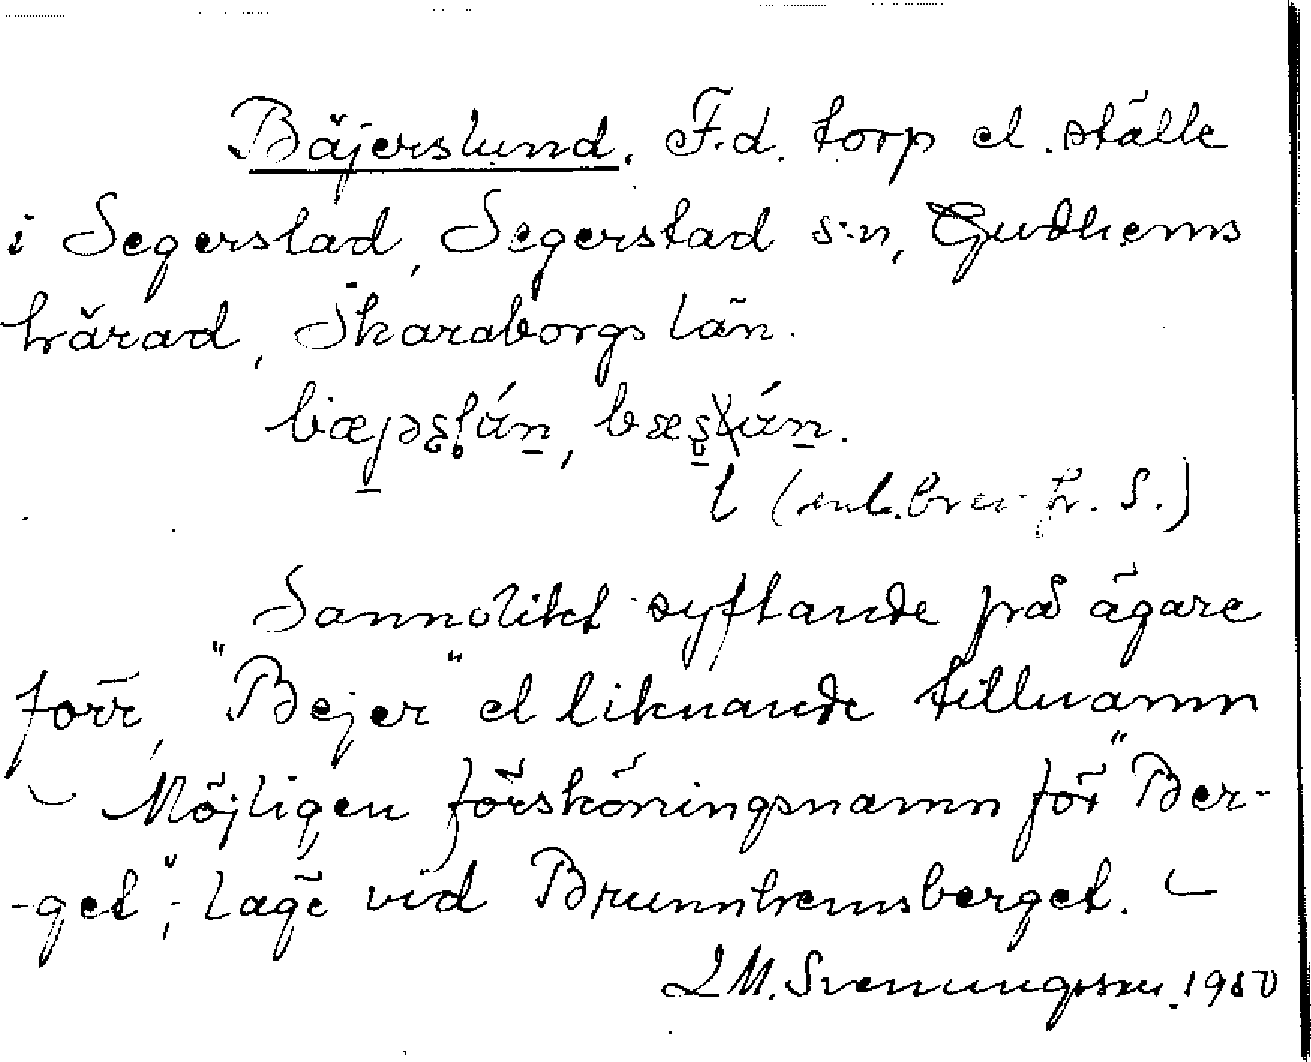 Bäjerslund. F.d. torp el. ställe
i Segerstad, Segerstad s:n, Gudhems
härad, Skaraborgs län.
l (enl. brev fr. S.)
Sannolikt syftande på ägare
förr, "Bejer" el liknande tillnamn
– Möjligen försköningsnamn för "Ber-
-get", läge vid Brunnhemsberget. –
L M. Svenungsson. 1950